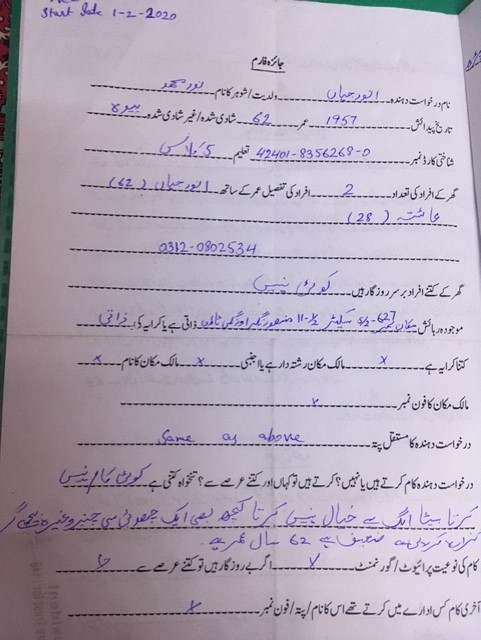 Start Date 1-2-2020
جائزہ فارم
نام درخواست دہندہ انور جہاں ولدیت/شوہر کا نام نور محمد
تاریخ پیدائش 1957 عمر 62 شادی شدہ/غیر شادی شدہ بیوہ
شناختی کارڈ نمبر 42401-8356268-0 تعلیم 5 کلاس
گھر کے افراد کی تعداد 2 افراد کی تفصیل عمر کے ساتھ انور جہاں (62)
عائشہ (28)
0312-0802534
گھر کے کتنے افراد برسر روزگار ہیں کوئی نہیں
موجودہ رہائش مکان نمبر 627 سیکٹر 11-½ منصور نگر اورنگی ٹاؤن ذاتی ہے یا کرایہ کی ذاتی
کتنا کرایہ ہے x مالک مکان رشتہ دار ہے یا اجنبی x مالک مکان کا نام x
مالک مکان کا فون نمبر x
درخواست دہندہ کا مستقل پتہ Same as above
درخواست دہندہ کام کرتے ہیں یا نہیں؟ کرتے ہیں تو کہاں اور کتنے عرصے سے؟ تنخواہ کتنی ہے کوئی کام نہیں
کرتا بیٹا الگ ہے خیال نہیں کرتا کچھ بھی ایک چھوٹی سی چیز وغیرہ کر
گزارہ کر رہی ہے ضعیف ہے 62 سال عمر ہے
کام کی نوعیت پرائیوٹ/گورنمنٹ x اگر بے روزگار ہیں تو کتنے عرصے سے x
آخری کام کس ادارے میں کرتے تھے اس کا نام/پتہ/فون نمبر x